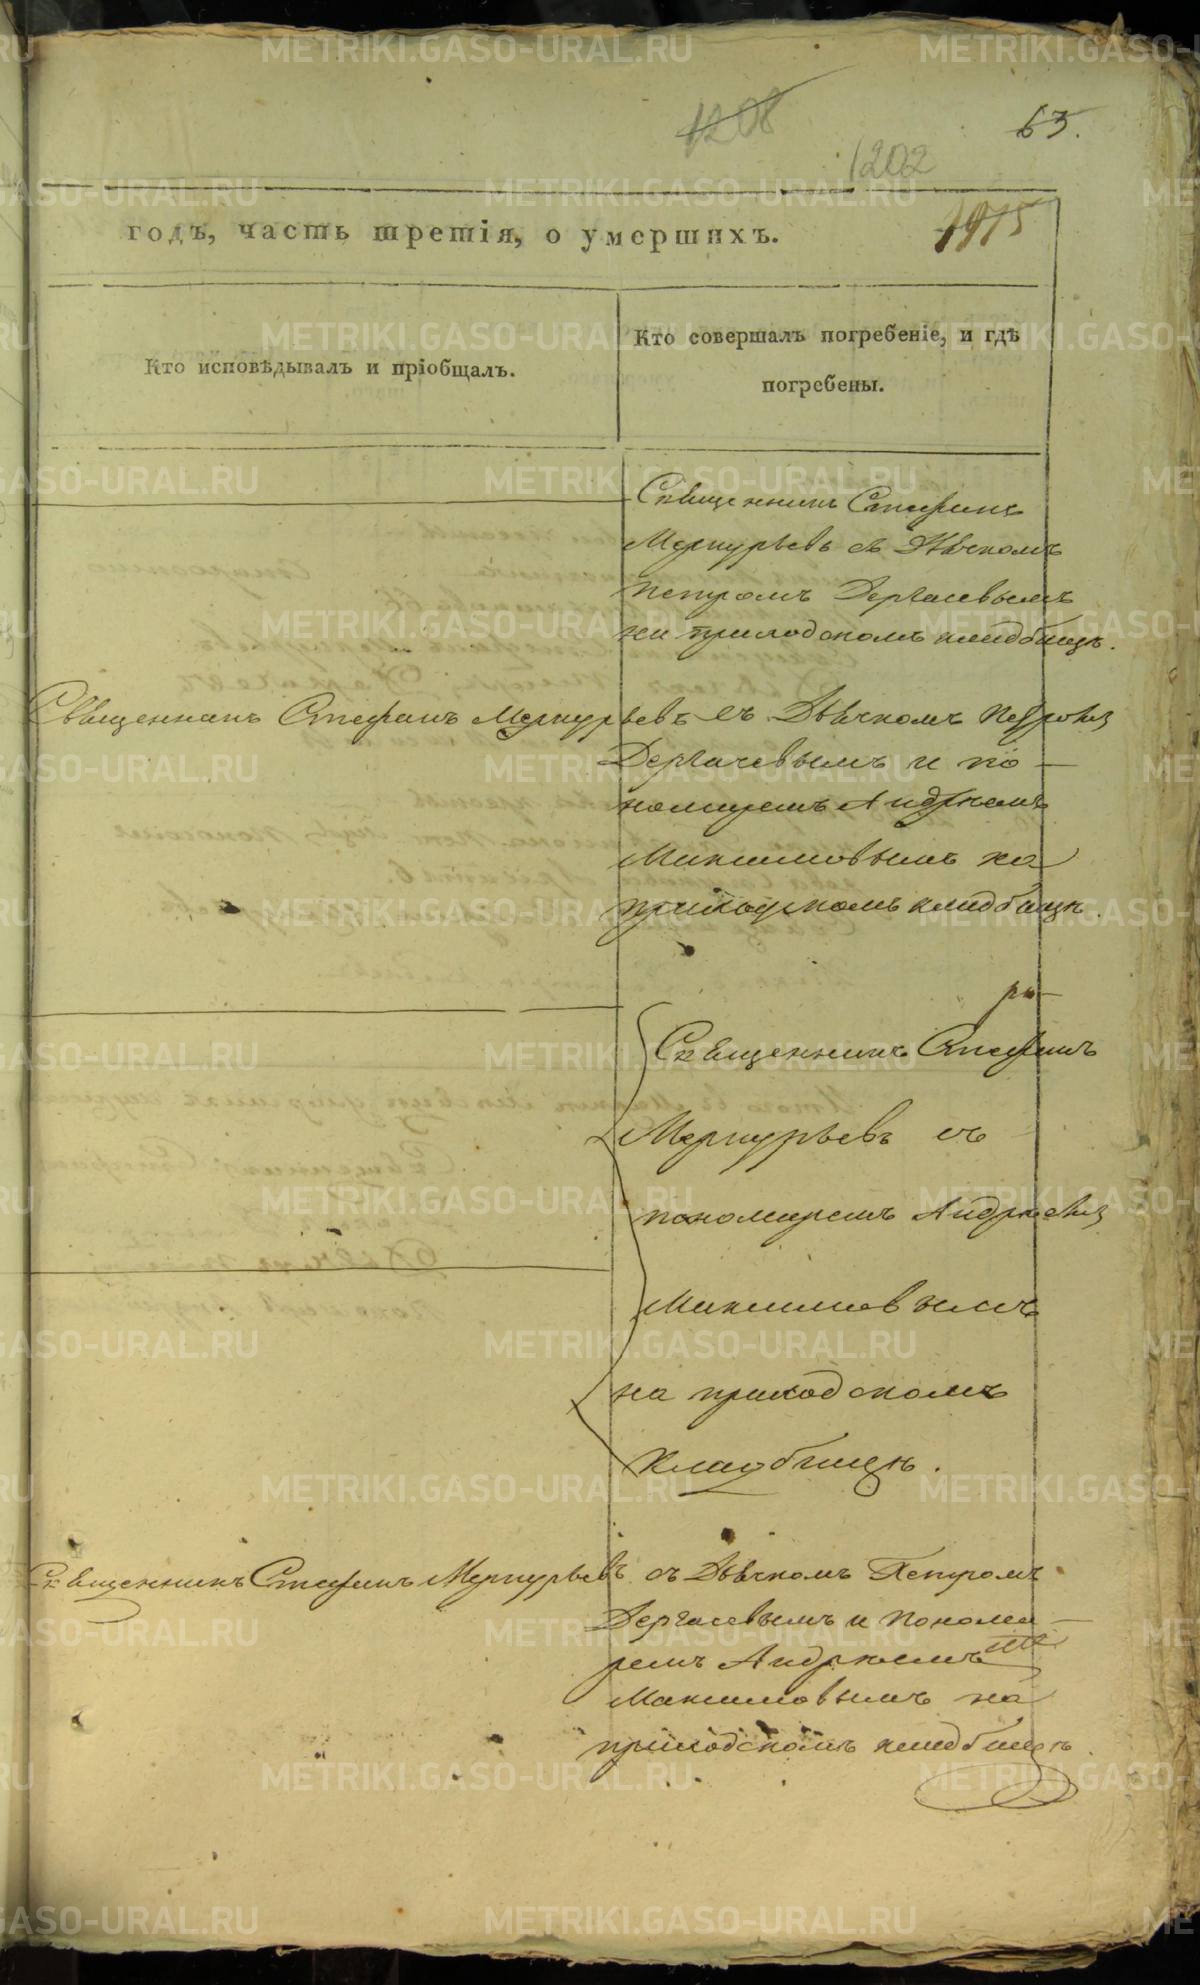 1208
63.
1202
1915
годъ, часть третія, о умершихъ.
Кто исповѣдывалъ и пріобщалъ.
Кто совершалъ погребеніе, и гдѣ
погребены.
Священникъ Стефанъ
Меркурьевъ съ Дьячкомъ
Петромъ Дергачевымъ
на приходскомъ кладбищѣ.
Священникъ Стефанъ Меркурьевъ съ Дьячкомъ Петромъ
Дергачевымъ и по-
номаремъ Андреемъ
Максимовымъ на
приходскомъ кладбищѣ.
Священникъ Стефанъ
Меркурьевъ съ
пономаремъ Андреемъ
Максимовымъ
на приходскомъ
кладбищѣ.
Священникъ Стефанъ Меркурьевъ съ Дьячкомъ Петромъ
Дергачевымъ и Понома-
ремъ Андреемъ
Максимовымъ на
приходскомъ кладбищѣ.
METRIKI.GASO-URAL.RU